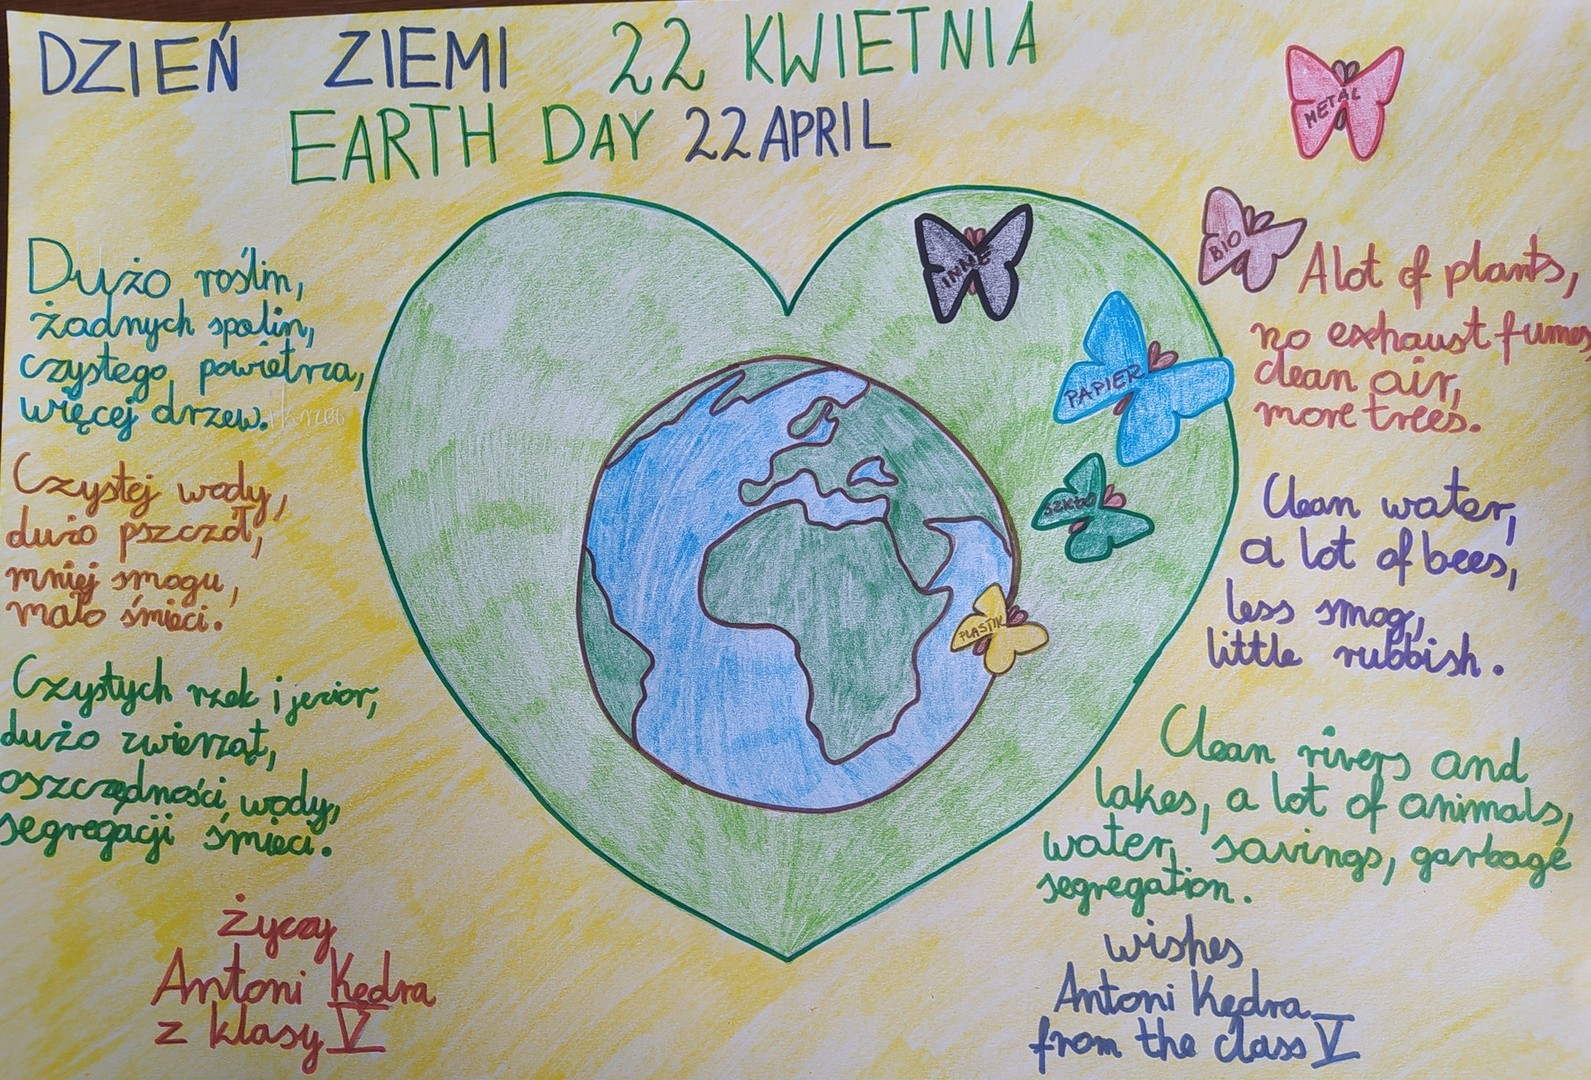 DZIEŃ ZIEMI 22 KWIETNIA
EARTH DAY 22 APRIL
Dużo roślin,
żadnych spalin,
czystego powietrza,
więcej drzew.
Czystej wody,
dużo pszczół,
mniej smogu,
mało śmieci.
Czystych rzek i jezior,
dużo zwierząt,
oszczędności wody,
segregacji śmieci.
życzy
Antoni Kędra
z klasy V
METAL
BIO
INNE
PAPIER
SZKŁO
PLASTIK
A lot of plants,
no exhaust fumes,
clean air,
more trees.
Clean water,
a lot of bees,
less smog,
little rubbish.
Clean rivers and
lakes, a lot of animals,
water, savings, garbage
segregation.
wishes
Antoni Kędra
from the class V